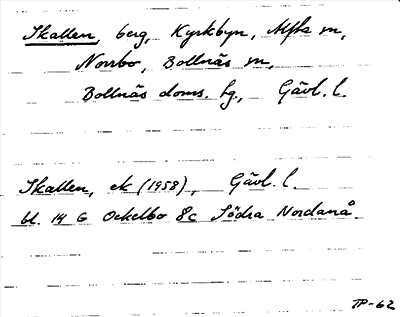 Skallen, berg, Kyrkbyn, Alfta sn,
Norrbo, Bollnäs sn,
Bollnäs doms. hg, Gävl. l.
Skallen, ek (1958), Gävl. l.
bl. 14 G Ockelbo 8c Södra Nordanå
TP-62